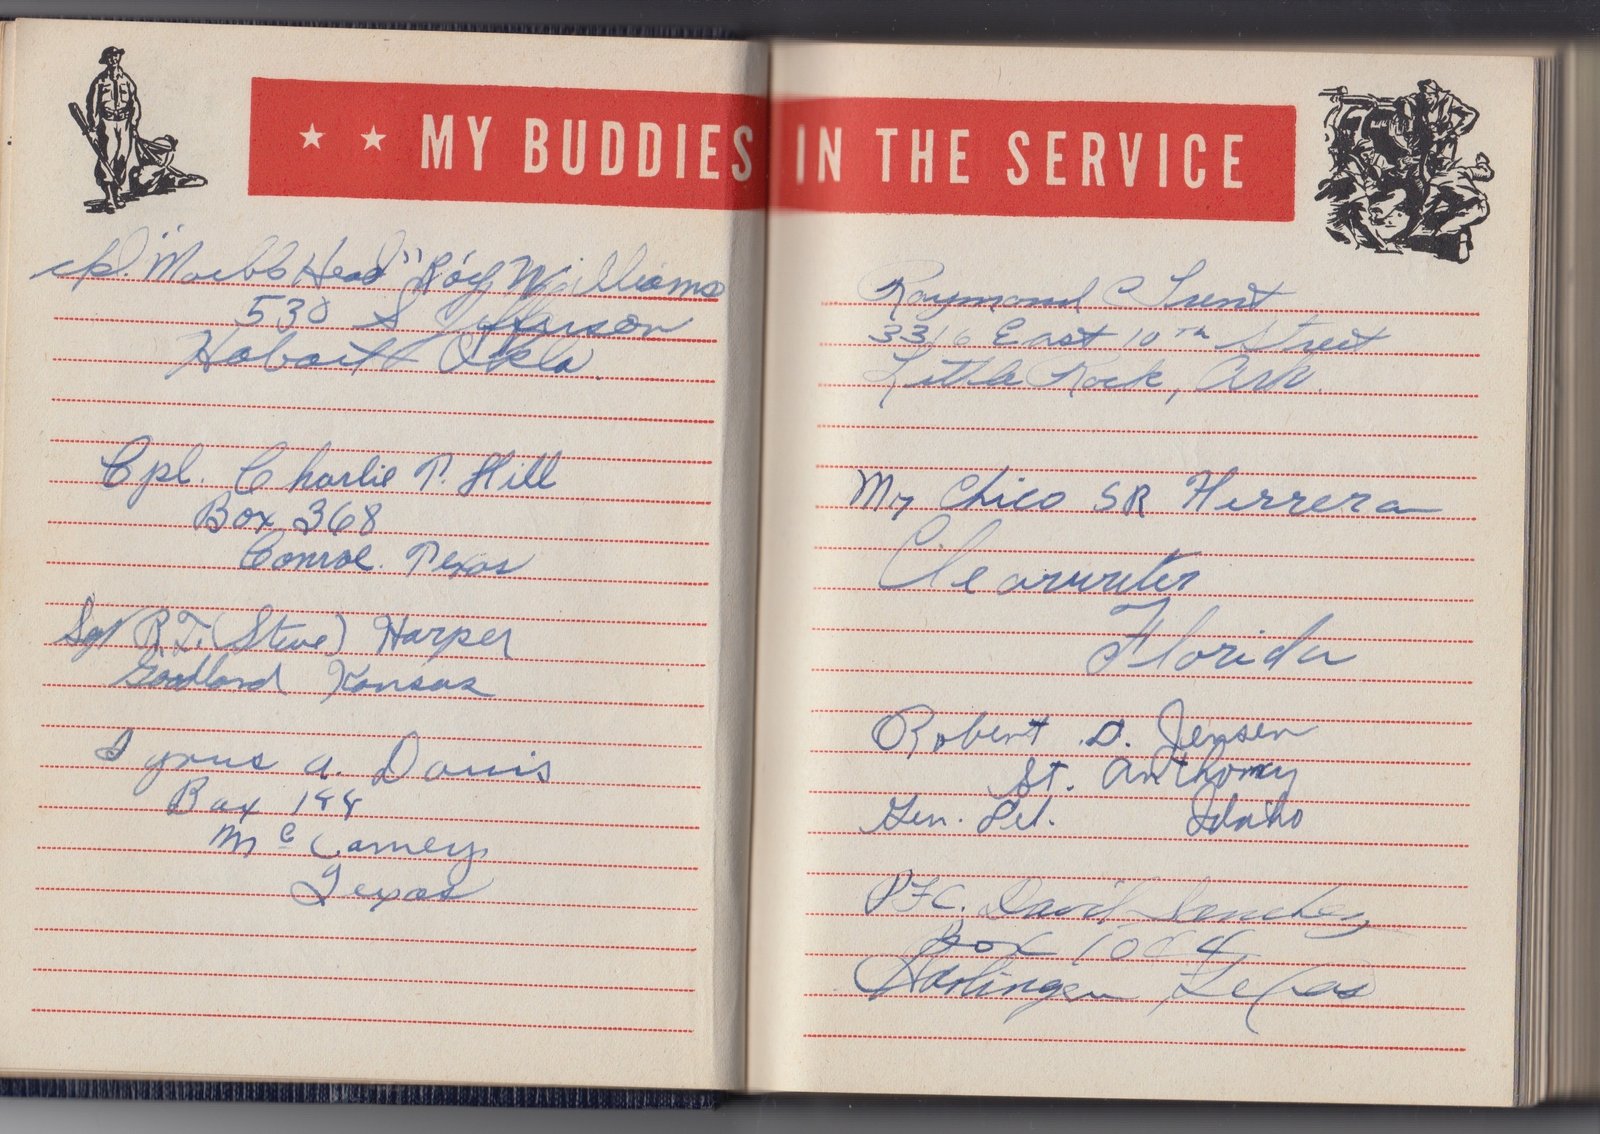 MY BUDDIES IN THE SERVICE
cpl. " Head" Roy Williams
530 S Jefferson
Hobart Okla.
Cpl. Charlie T. Hill
Box 368
Conroe. Texas
Sgt R.T. (Steve) Harper
Goodland Kansas
Tyrus A. Davis
Box 144
McCamey,
Texas
Raymond C Trent
3316 East 10th Street
Little Rock, Ark.
Mr Chico SR Herrera
Clearwater
Florida
Robert D. Jensen
St. Anthony
Gen. Del. Idaho
PFC. David Sanchez
Box 1044
Harlingen Texas